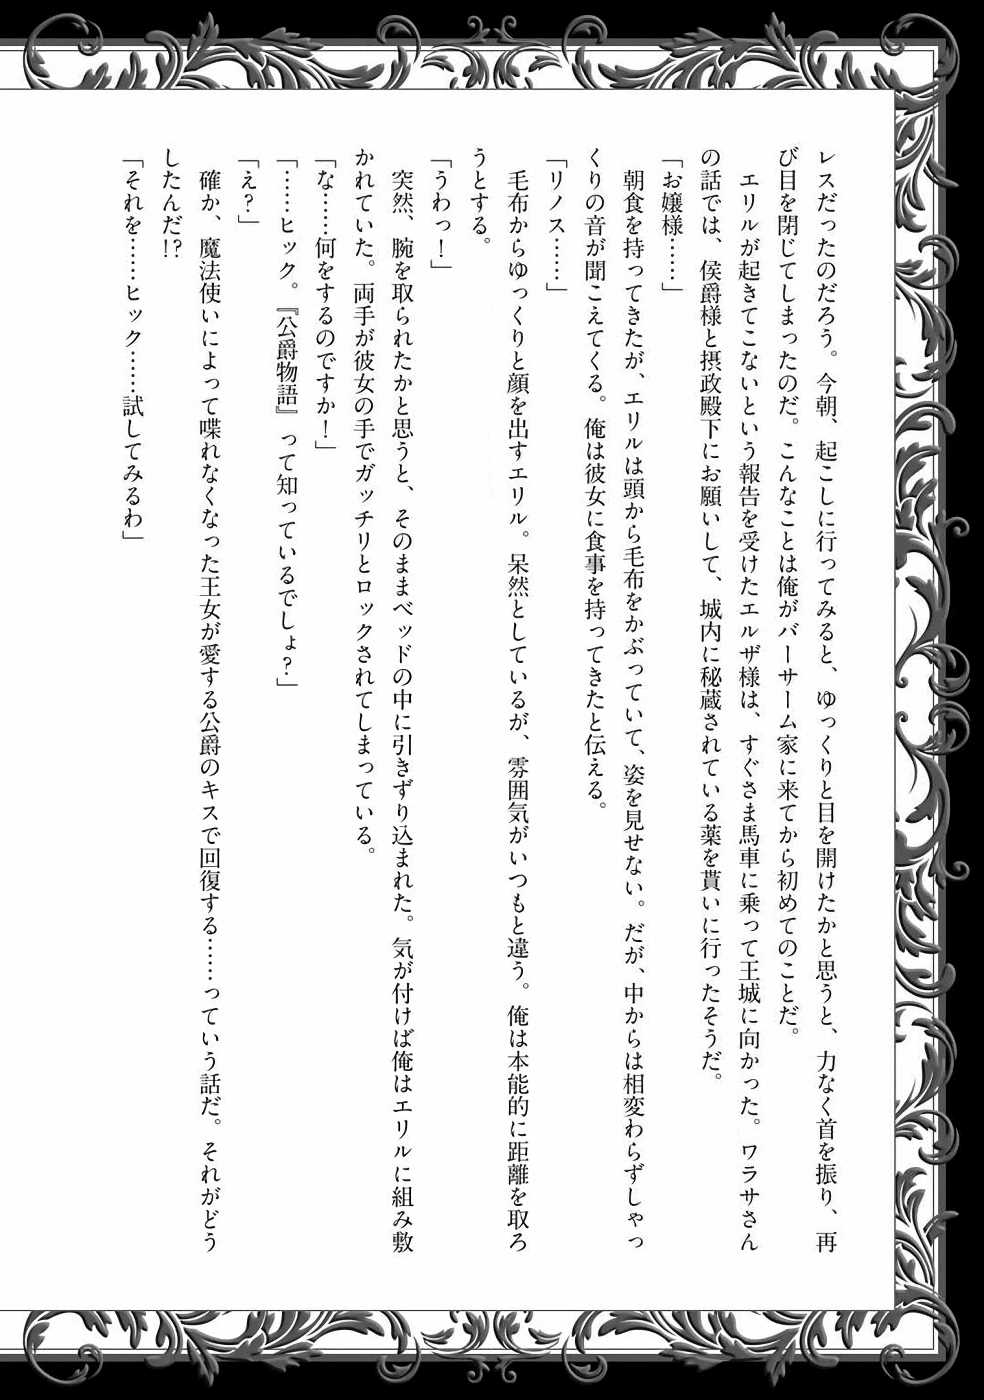 レスだったのだろう。今朝、起こしに行ってみると、ゆっくりと目を開けたかと思うと、力なく首を振り、再
び目を閉じてしまったのだ。こんなことは俺がバーサーム家に来てから初めてのことだ。
エリルが起きてこないという報告を受けたエルザ様は、すぐさま馬車に乗って王城に向かった。ワラサさん
の話では、侯爵様と摂政殿下にお願いして、城内に秘蔵されている薬を貰いに行ったそうだ。
「お嬢様……」
朝食を持ってきたが、エリルは頭から毛布をかぶっていて、姿を見せない。だが、中からは相変わらずしゃっ
くりの音が聞こえてくる。俺は彼女に食事を持ってきたと伝える。
「リノス……」
毛布からゆっくりと顔を出すエリル。呆然としているが、雰囲気がいつもと違う。俺は本能的に距離を取ろ
うとする。
「うわっ！」
突然、腕を取られたかと思うと、そのままベッドの中に引きずり込まれた。気が付けば俺はエリルに組み敷
かれていた。両手が彼女の手でガッチリとロックされてしまっている。
「な……何をするのですか！」
「……ヒック。『公爵物語』って知っているでしょ？」
「え？」
確か、魔法使いによって喋れなくなった王女が愛する公爵のキスで回復する……っていう話だ。それがどう
したんだ!?
「それを……ヒック……試してみるわ」